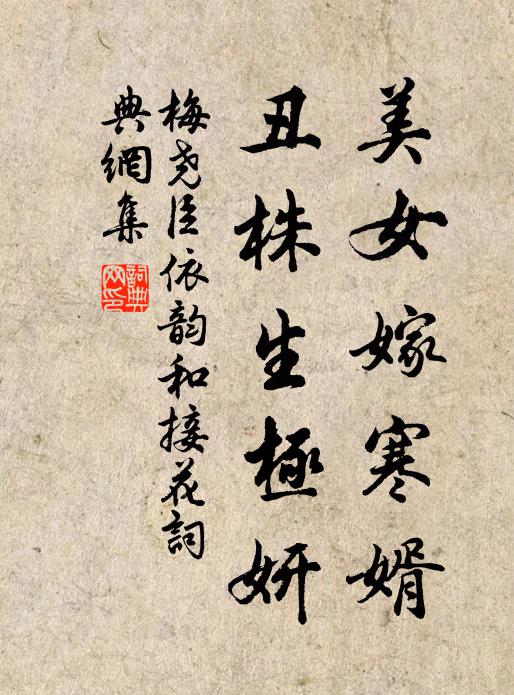 美女嫁寒婿
丑株生極妍
梅尧臣依韵和接花詞
典網集
詞典网印